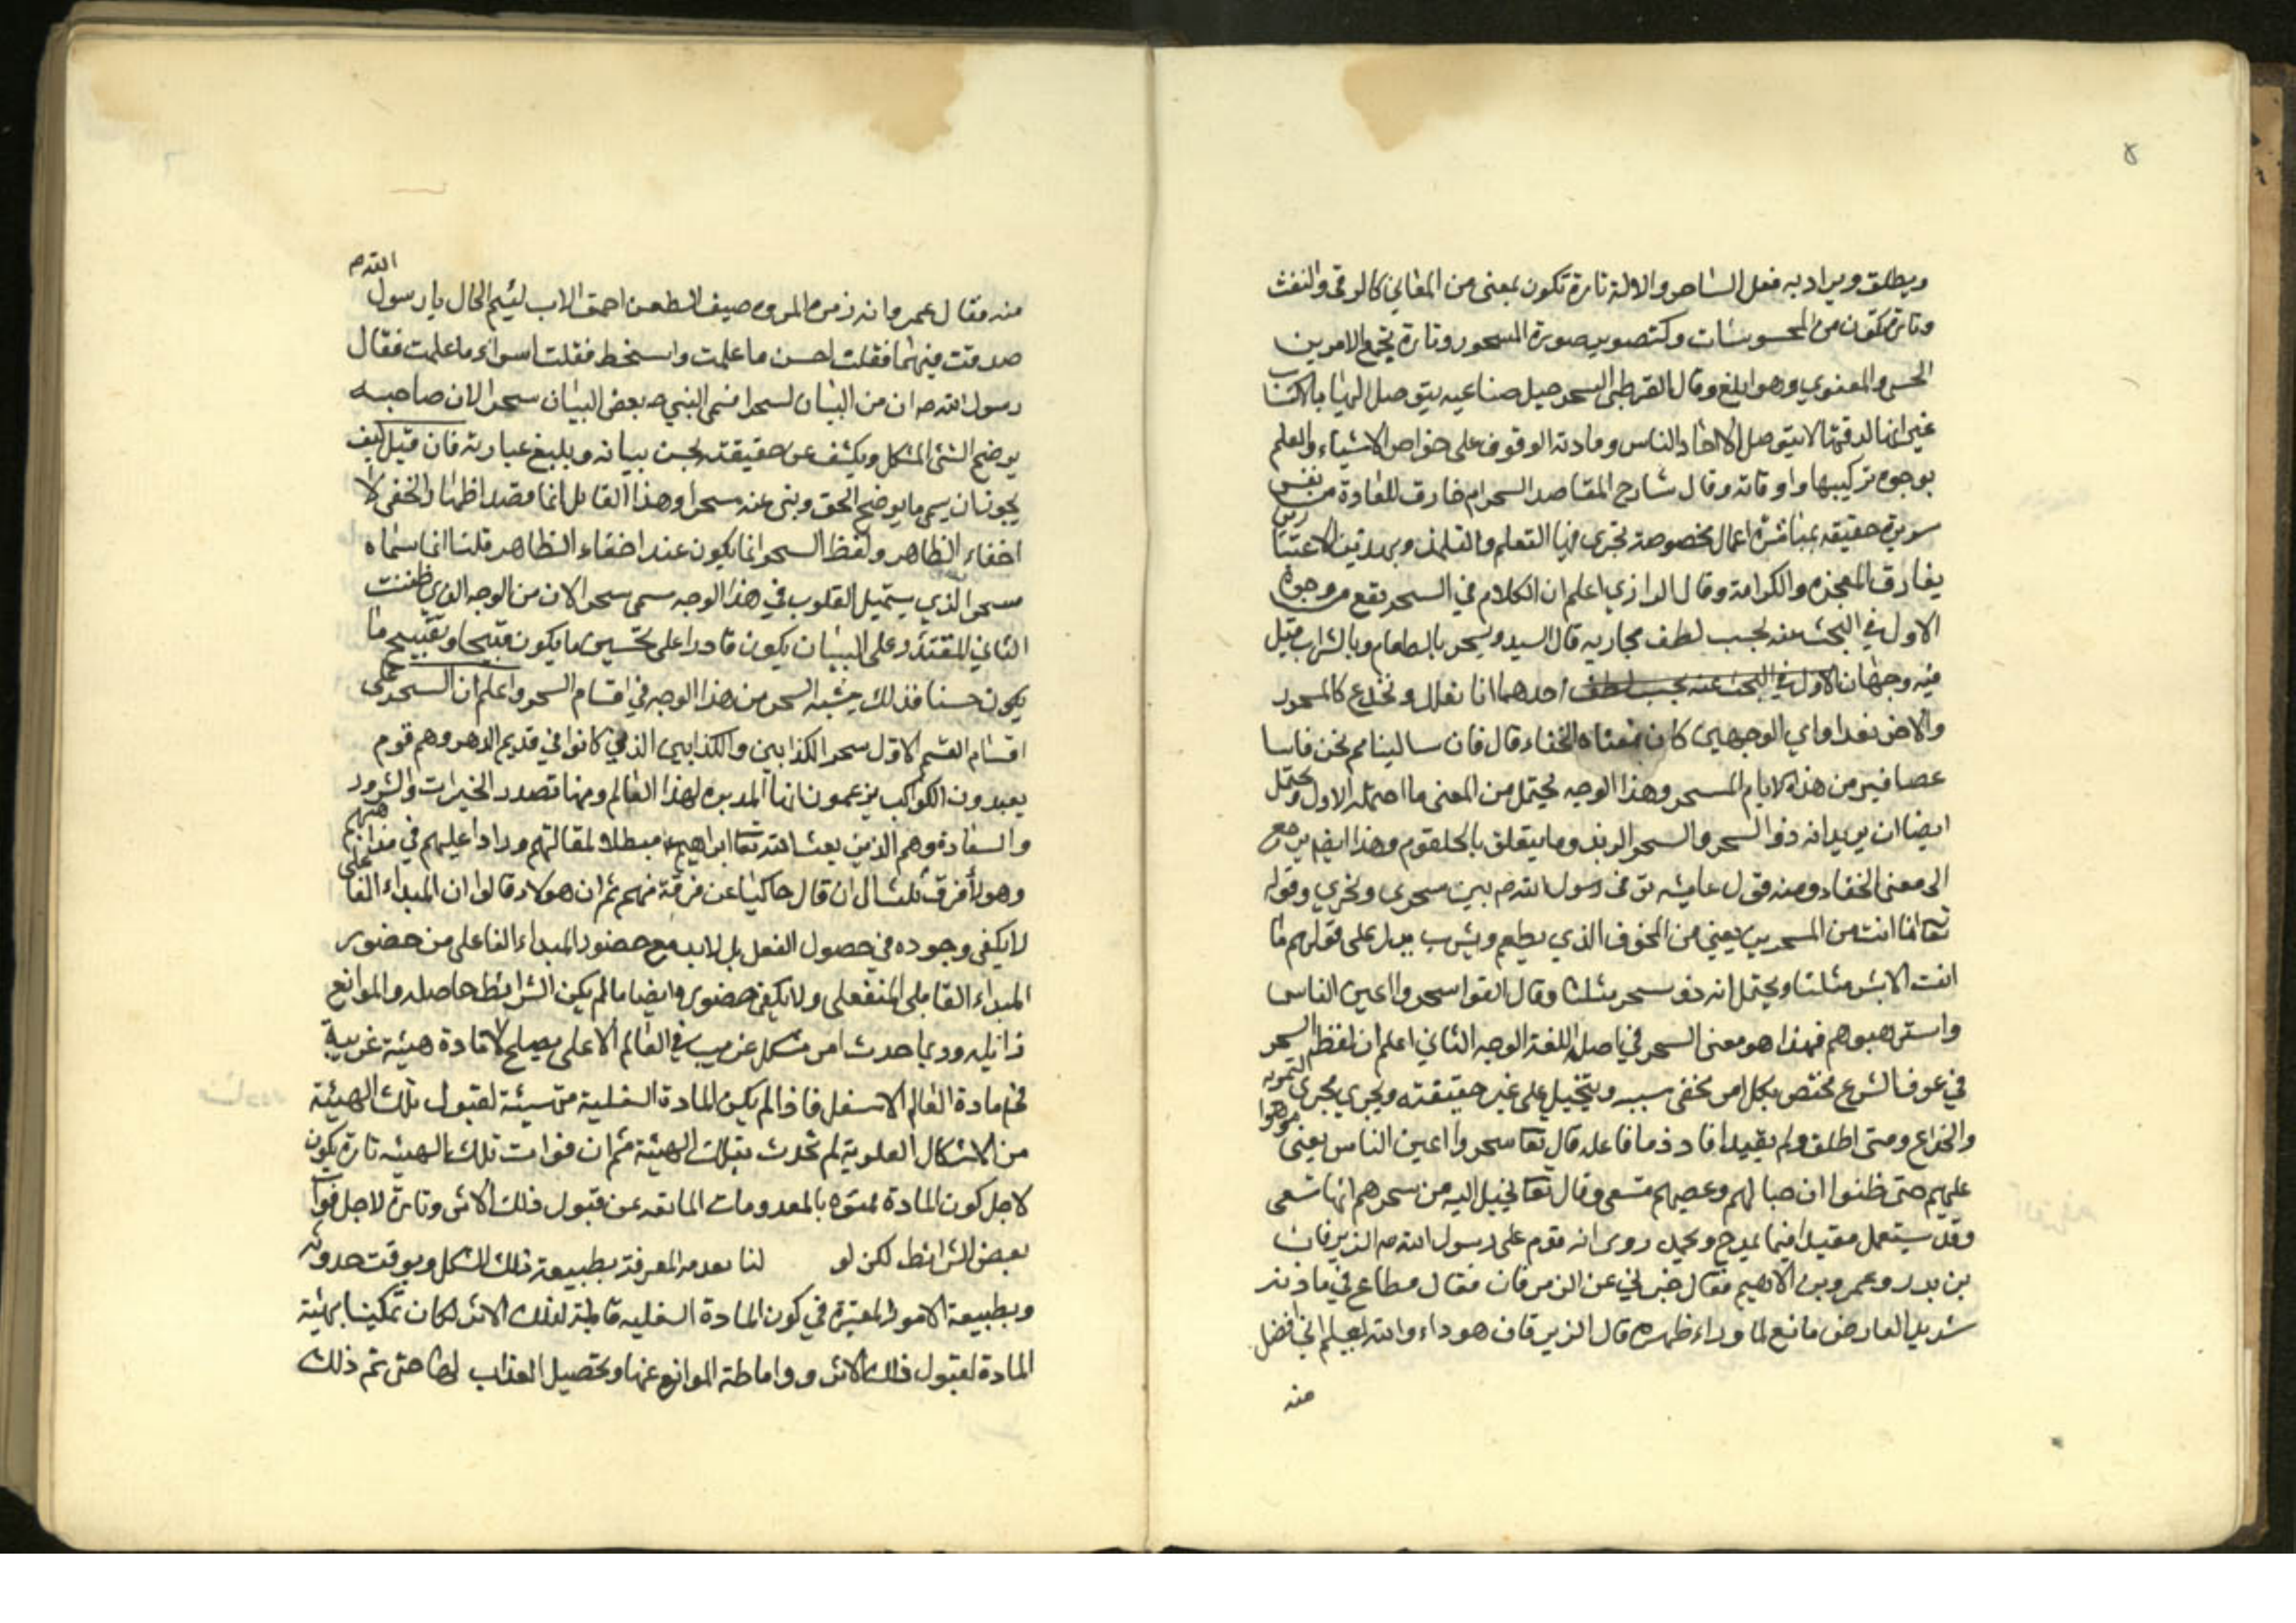 ويطلق ويراد به فعل الساحر والالة تارة تكون بمعنى من المعاني كالرقى والنفث
وتارة تكون من المحسوسات وكتصوير صورة المسحور وتارة يجمع الامرين
الحسي والمعنوي وهو ابلغ وقال القرطبي السحر حيل صناعيه يتوصل اليها بالاكتساب
غير انها لدقتها لا يتوصل الا احاد الناس ومادته الوقوف على خواص الاشياء والعلم
بوجوه تركيبها واوقاته وقال شارح المقاصد السحر امر خارق للعادة من نفس
شريرة حقيقه بمباشرة اعمال مخصوصة يجري فيها التعلم والتلمذ وبهذين الاعتبارين
يفارق المعجزه والكرامة وقال الرازي اعلم ان الكلام في السحر يقع من وجوه
الاول في البحث عنه بحسب لطف مجاريه قال السيد ويسحر بالطعام وبالشراب قيل
فيه وجهان الاول في البحث عنه بحسب لطف احدهما انا نعلل ونخدع كالمسحور
والاخر نغدا واي الوجهين كان معناه الخفاء وقال فان سالينا مم نحن فاسا
عصافير من هذه الايام المسحر وهذا الوجه يحتمل من المعنى ما احتمله الاول ويحتمل
ايضا ان يريد انه ذو السحر والسحر الريه وما يتعلق بالحلقوم وهذا ايضا يرجع
الى معنى الخفاء ومنه قول عايشه توفى رسول الله ص بين سحري ونحري وقوله
تعا انما انت من المسحرين يعني من المخوف الذي يطعم ويشرب يدل على قولهم ما
انت الا بشر مثلنا ويحتمل انه ذو سحر مثلنا وقال القوا سحروا اعين الناس
واسترهبوهم فهذا هو معنى السحر في اصل اللغة الوجه الثاني اعلم ان لفظ السحر
في عرف الشرع مختص بكل امر يخفى سببه ويتخيل على غير حقيقته ويجري مجرى التمويه
والخداع ومتى اطلق ولم يقيد افاد ذم فاعله قال تعا سحروا اعين الناس يعني موهوا
عليهم حتى ظنوا ان حبالهم وعصيهم تسعى وقال تعا يخيل اليه من سحرهم انها تسعى
وقد يستعمل مقيدا فيما يمدح ويحمد روى انه قدم على رسول الله ص الزبرقان
بن بدر وعمرو بن الاهيم فقال خبرني عن الزبرقان فقال مطاع في ناديه
شديد العارض مانع لما وراء ظهره قال الزبرقان هو داء والله يعلم اني افضل
منه
منه فقال عمر وانه زمر المروه ضيق العطن احمق الاب لئيم الخال يا رسول الله ص
صدقت فيهما فقلت احسن ما علمت واسخط فقلت اسواء ما علمت فقال
رسول الله ص ان من البيان لسحرا فسمى النبي ص بعض البيان سحرا لان صاحبه
يوضح الشئ المشكل ويكشف عن حقيقته بحسن بيانه وبليغ عبارته فان قيل كيف
يجوز ان يسمى ما يوضح الحق وبنى عنه سحرا وهذا القايل انما قصد اظهار الخفى لا
اخفاء الظاهر ولفظ السحر انما يكون عند اخفاء الظاهر قلنا انما سماه
سحرا الذي يستميل القلوب في هذا الوجه سمى سحرا لان من الوجه الذي ظننت
الثاني المقتدر على البيان يكون قادرا على تحسين ما يكون قبيحا وتقبيح ما
يكون حسنا فذلك يشبه السحر من هذا الوجه في اقسام السحر واعلم ان السحر على
اقسام القسم الاول سحر الكذابين والكذابين الذي كانوا في قديم الدهر وهم قوم
يعبدون الكواكب يزعمون انها المدبره لهذا العالم ومنها تصدر الخيرات والشرور
والسعادة وهم الذين بعث الله تعا ابراهيم ع مبطلا لمقالتهم ورادا عليهم في مذاهبهم
وهولا فرق ثلث الى ان قال حاكيا عن فرقة منهم ثم ان هولاء قالوا ان المبداء الفاعلى
لا يكفى وجوده في حصول الفعل بل لابد مع حضور المبداء الفاعلى من حضور
المبداء القابلى المنفعلى ولا يكفى حضوره ايضا ما لم يكن الشرايط حاصله والموانع
زايله وربما حدث امر مشكل غريب في العالم الاعلى يصلح لافادة هيئة غريبة
في مادة العالم الاسفل فاذا لم يكن المادة السفلية متهيئة لقبول تلك الهيئة
من الاشكال العلوية لم تحدث بتلك الهيئة ثم ان فوات تلك الهيئه تارة يكون
لاجل كون المادة ممنوه بالمعدومات المانعه عن قبول ذلك الاثر وتارة لاجل فوات
بعض الشرائط لكن لو لنا بعد من المعرفة بطبيعة ذلك الشكل وبوقت حدوثه
وبطبيعة الامور المعتبرة في كون المادة السفليه قابلة لذلك الاثر لكان تمكينا بهيئة
المادة لقبول ذلك الاثر واماطة الموانع عنها وتحصيل العذاب لها حتى تم ذلك